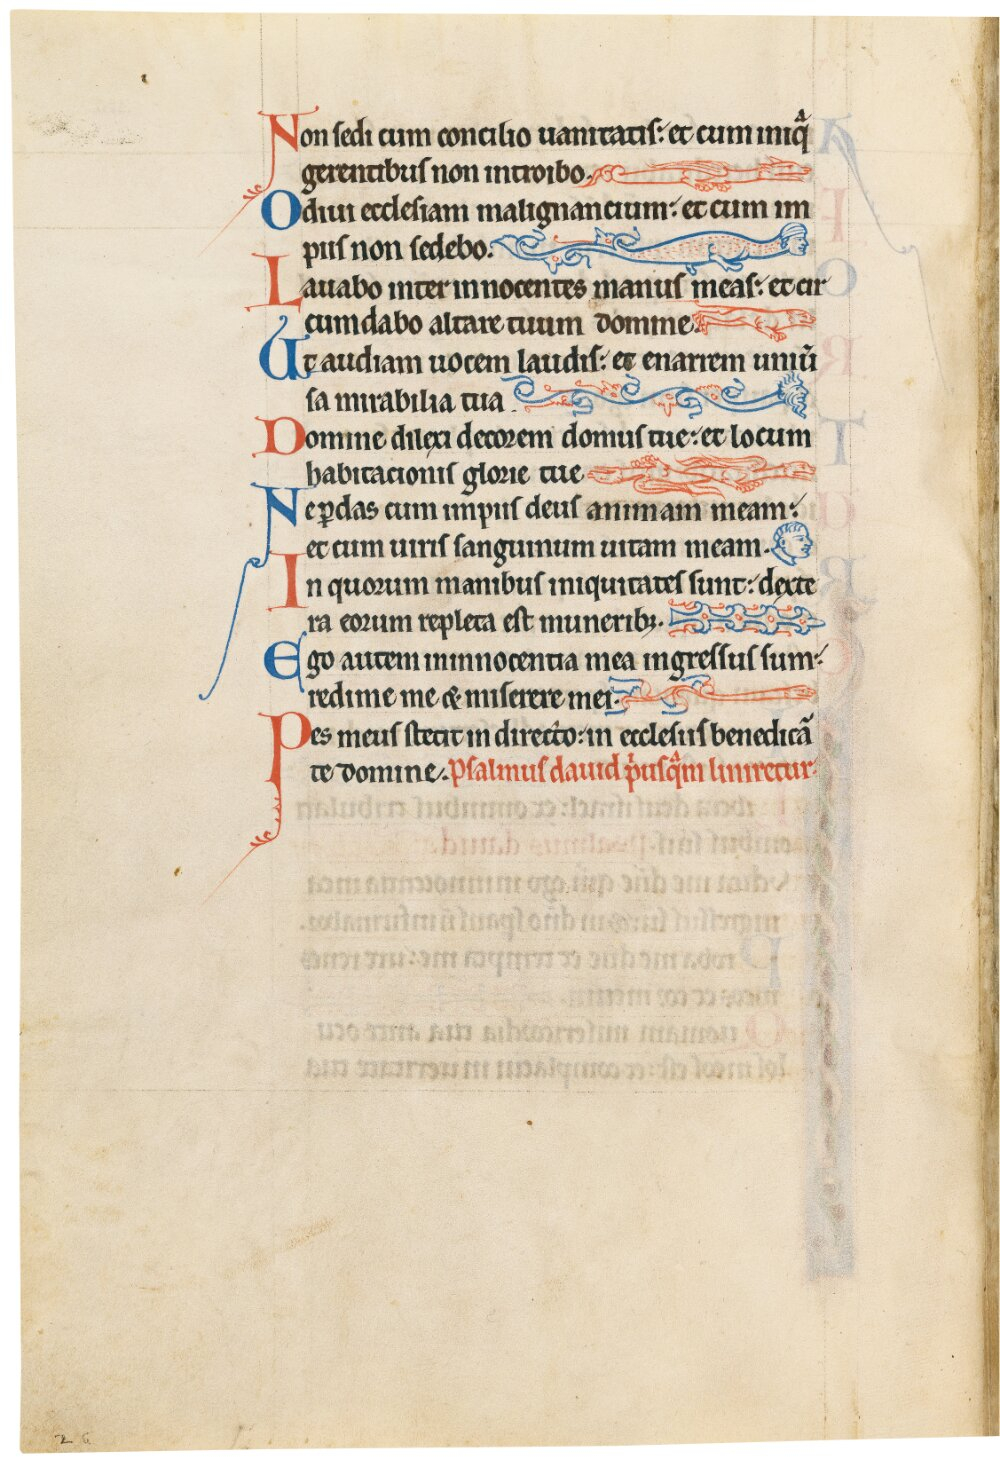 Non sedi cum concilio uanitatis: et cum iniqͣ
gerentibus non introibo.
Odiui ecclesiam malignancium: et cum im
piis non sedebo.
Lauabo inter innocentes manus meas: et cir
cumdabo altare tuum domine.
Ut audiam uocem laudis: et enarrem uniũ
sa mirabilia tua.
Domine dilexi decorem domus tue: et locum
habitacionis glorie tue
Ne ꝑdas cum impiis deus animam meam:
et cum uiris sanguinum uitam meam.
In quorum manibus iniquitates sunt: dexte
ra eorum repleta est muneribꝫ.
Ego autem in innocentia mea ingressus sum:
redime me & miserere mei.
Pes meus stetit in directo: in ecclesiis benedicã
te domine. Psalmus dauid pͥusqͣm liniretur.
26